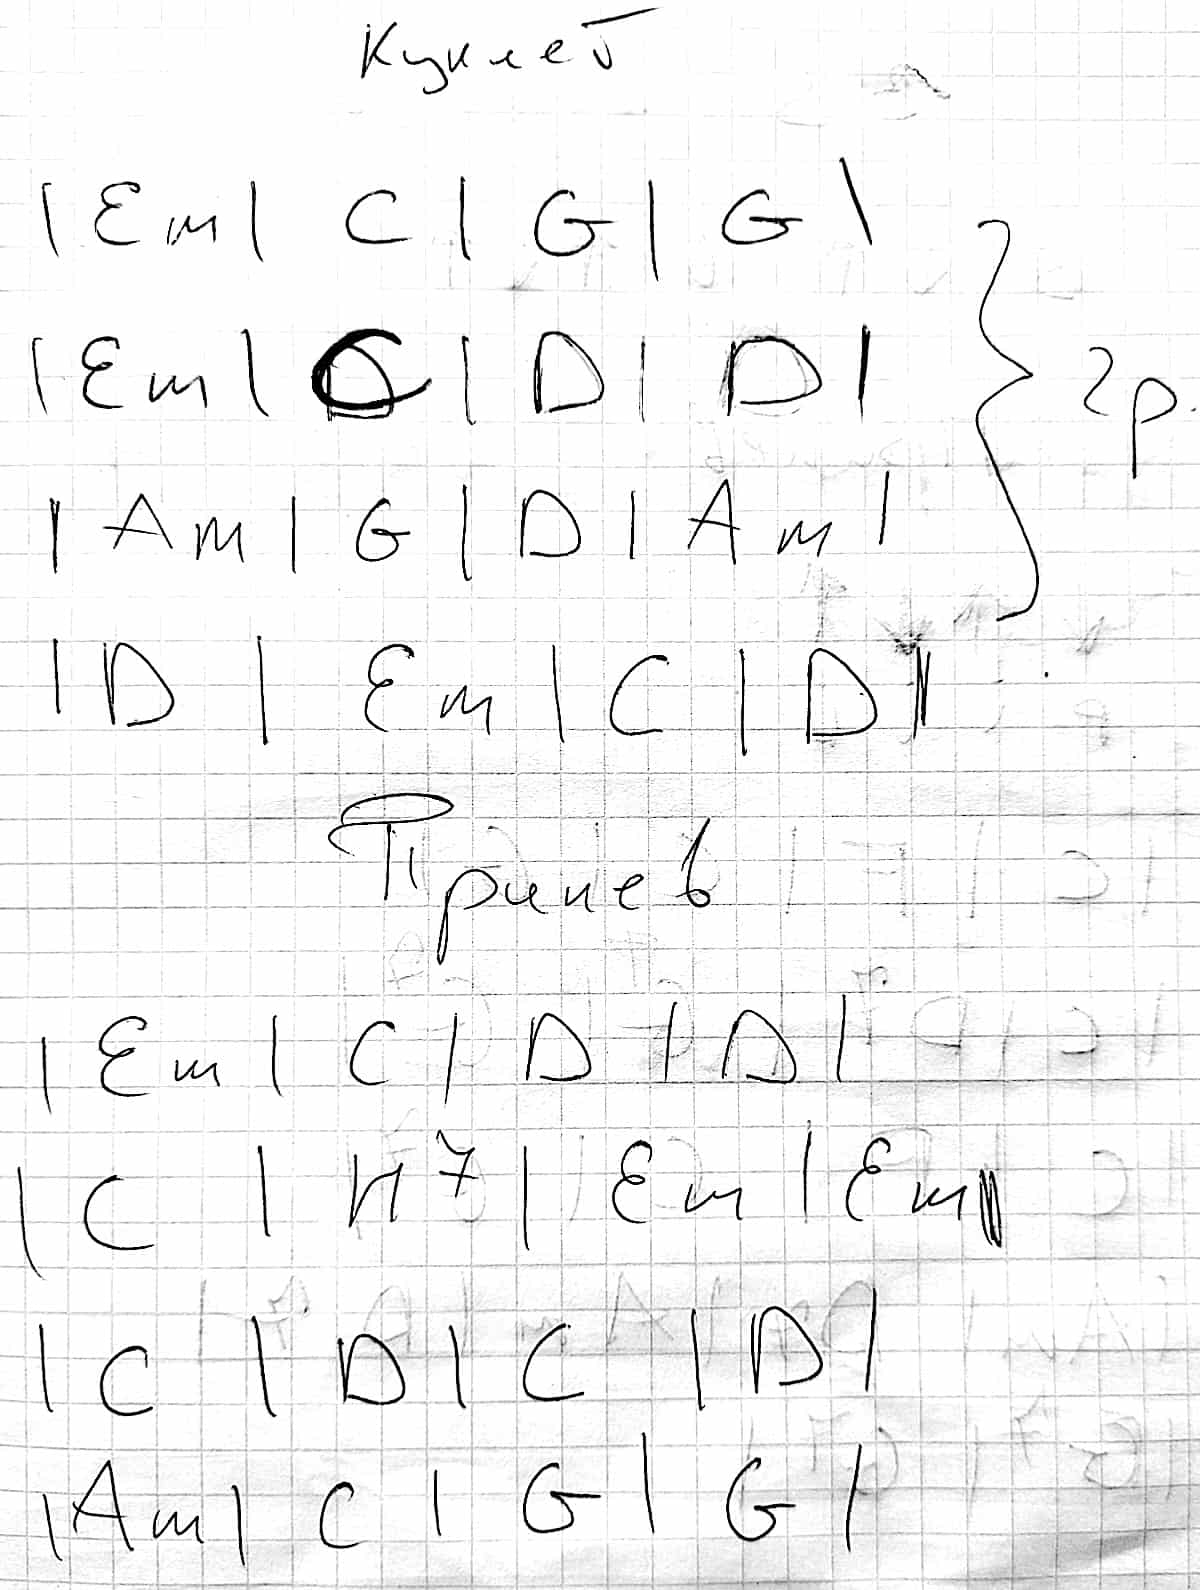 Куплет
| Em | C | G | G |
| Em | C | D | D |
2р.
| Am | G | D | Am |
| D | Em | C | D ||
Припев
| Em | C | D | D |
| C | H7 | Em | Em ||
| C | D | C | D |
| Am | C | G | G |